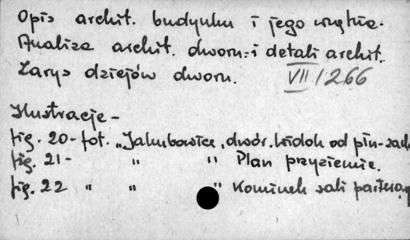 Opis archit. budynku i jego wnętrza.
Analiza archit. dworu i detali archit.
Zarys dziejów dworu. VII/266
Ilustracje -
fig. 20 - fot. „Jakubowice, dwór. Widok od płn-zach
fig. 21 - " " Plan przyziemia.
fig. 22 " " " Kominek sali parter